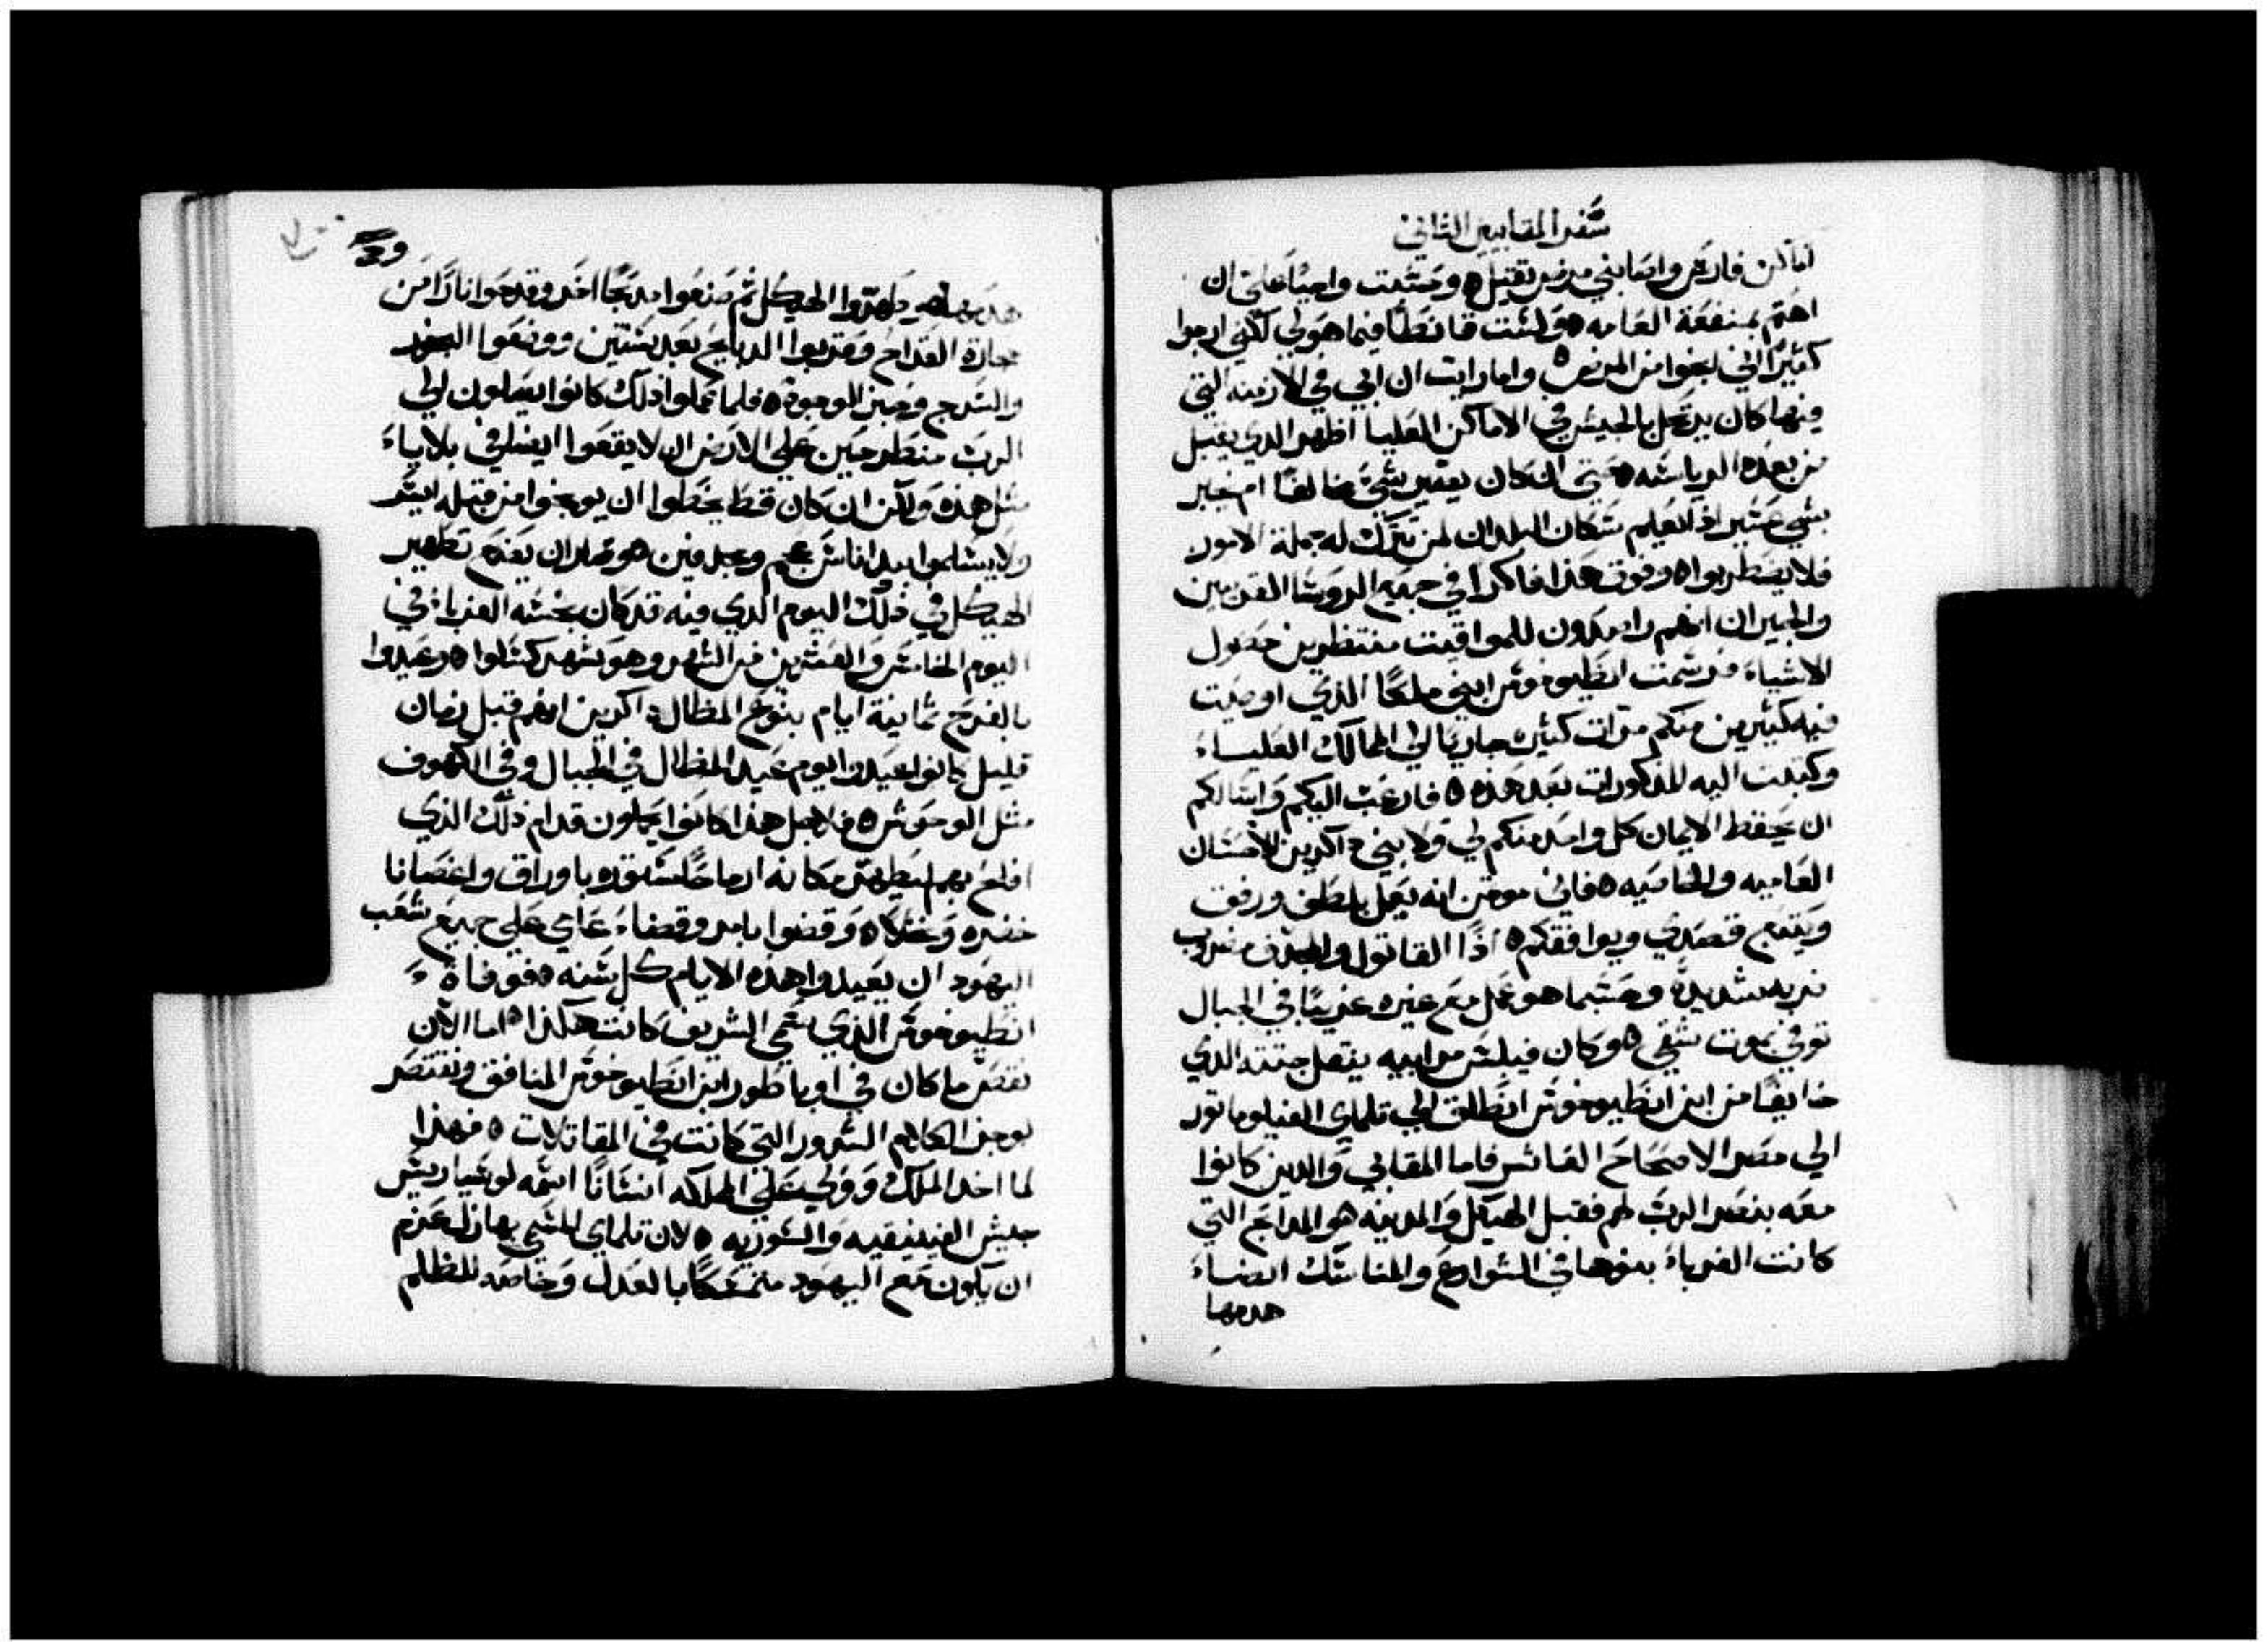 سفر المقابيين الثاني
اماكن فارس واصابني مرض ثقيل وحسبت واجبًا علي ان
اهتم بمنفعة العامه ولست قانطًا فيما هو لي لكني ارجوا
كثيرًا اني انجوا من المرض واما رايت ان ابي في الازمنه التي
فيها كان يرتحل بالجيش في الاماكن العليا اظهر الذي يقبل
من بعده الرياسه حتي ان كان يعتري شي مخالفًا ام خبر
بشي عسير اذ تعلم سكان البلدان لمن تترك له جملة الامور
فلا يضطربوا وفوق هذا فاكرًا في جميع الروسا القريبين
والجيران انهم راصدون للمواقيت منتظرين حصول
الاشياء فرسمت انطيوخوس ابني ملكًا الذي اوصيت
فيه كثيرين منكم مرات كثيره جاريًا الي الممالك العلياء
وكتبت اليه المذكورات بعد هذه فارغب اليكم واسالكم
ان يحفظ الايمان كل واحد منكم لي ولابني ذاكرين الاحسان
العاميه والخاصيه فاني موقن انه يعمل بلطف ورفق
ويتبع قصدي ويوافقكم اذًا القاتول والمجدف مضروب
ضربه شديدة وحسبما هو عمل مع غيره غريبًا في الجبال
توفي بموت شقي وكان فيلبس مرابيه ينقل جثته الذي
خايفًا من ابن انطيوخوس انطلق الي تلماي الفيلوماتور
الي مصر الاصحاح العاشر فاما المقابي والذين كانوا
معه بنصر الرب لهم فقبل الهيكل والمدينه هو المدابح التي
كانت الغرباء بنوها في الشوارع والمناسك ايضاء
هدمها
طهروا الهيكل ثم صنعوا مدبحًا اخر وقدحوا نارًا من
حجارة القداح وقربوا الدبايح بعد سنتين ووضعوا البخور
والسرج وخبز الوجوه فلما عملوا ذلك كانوا يصلون الي
الرب منطرحين علي الارض ان لا يقعوا ايضا في بلاياء
مثل هذه ولكن ان كان قط يخطوا ان يوبخوا من قبله ايسر
ولا يسلموا بيد اناس عجم ومجدفين هو تهيا ان يصنع تطهير
الهيكل في ذلك اليوم الذي فيه قد كان نجسه الغرباء في
اليوم الخامس والعشرين من الشهر وهو شهر كسلوا وعيدوا
بالفرح ثمانية ايام بنوع المظال داكرين انهم قبل زمان
قليل كانوا عيدوا يوم عيد المظال في الجبال وفي الكهوف
مثل الوحوش فلاجل هذا كانوا يحملون قدام ذلك الذي
افلح بهم لتطهير مكانه ارماحًا مسلوقه باوراق واغصانا
خضره ونخلاه وقضوا بامر وقضاء عامي علي جميع شعب
اليهود ان يعيدوا هذه الايام كل سنه فوفاة
انطيوخوس الذي سمي الشريف كانت هكذا اما الان
نقص ما كان في اوباطور ابن انطيوخوس المنافق ونقتصر
بوجيز الكلام الشرور التي كانت في المقاتلات فهذا
لما اخد الملك وولي علي المملكه انسانًا اسمه لوسياريس
جيش الفينيقيه والسوريه لان تلماي المسمي بها زل عزم
ان يكون مع اليهود متمسكًا بالعدل وخاصه للظلم